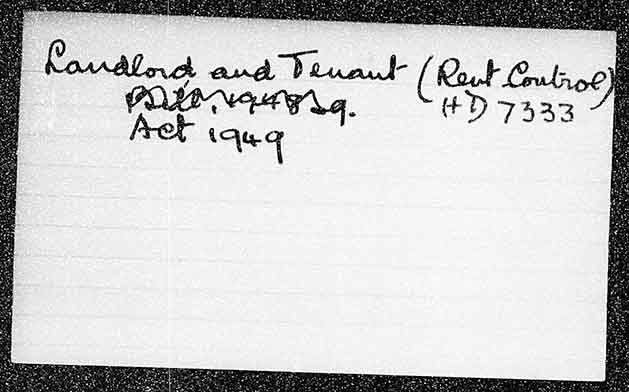 Landlord and Tenant (Rent Control)
Bill, 1948-9. HD 7333
Act 1949